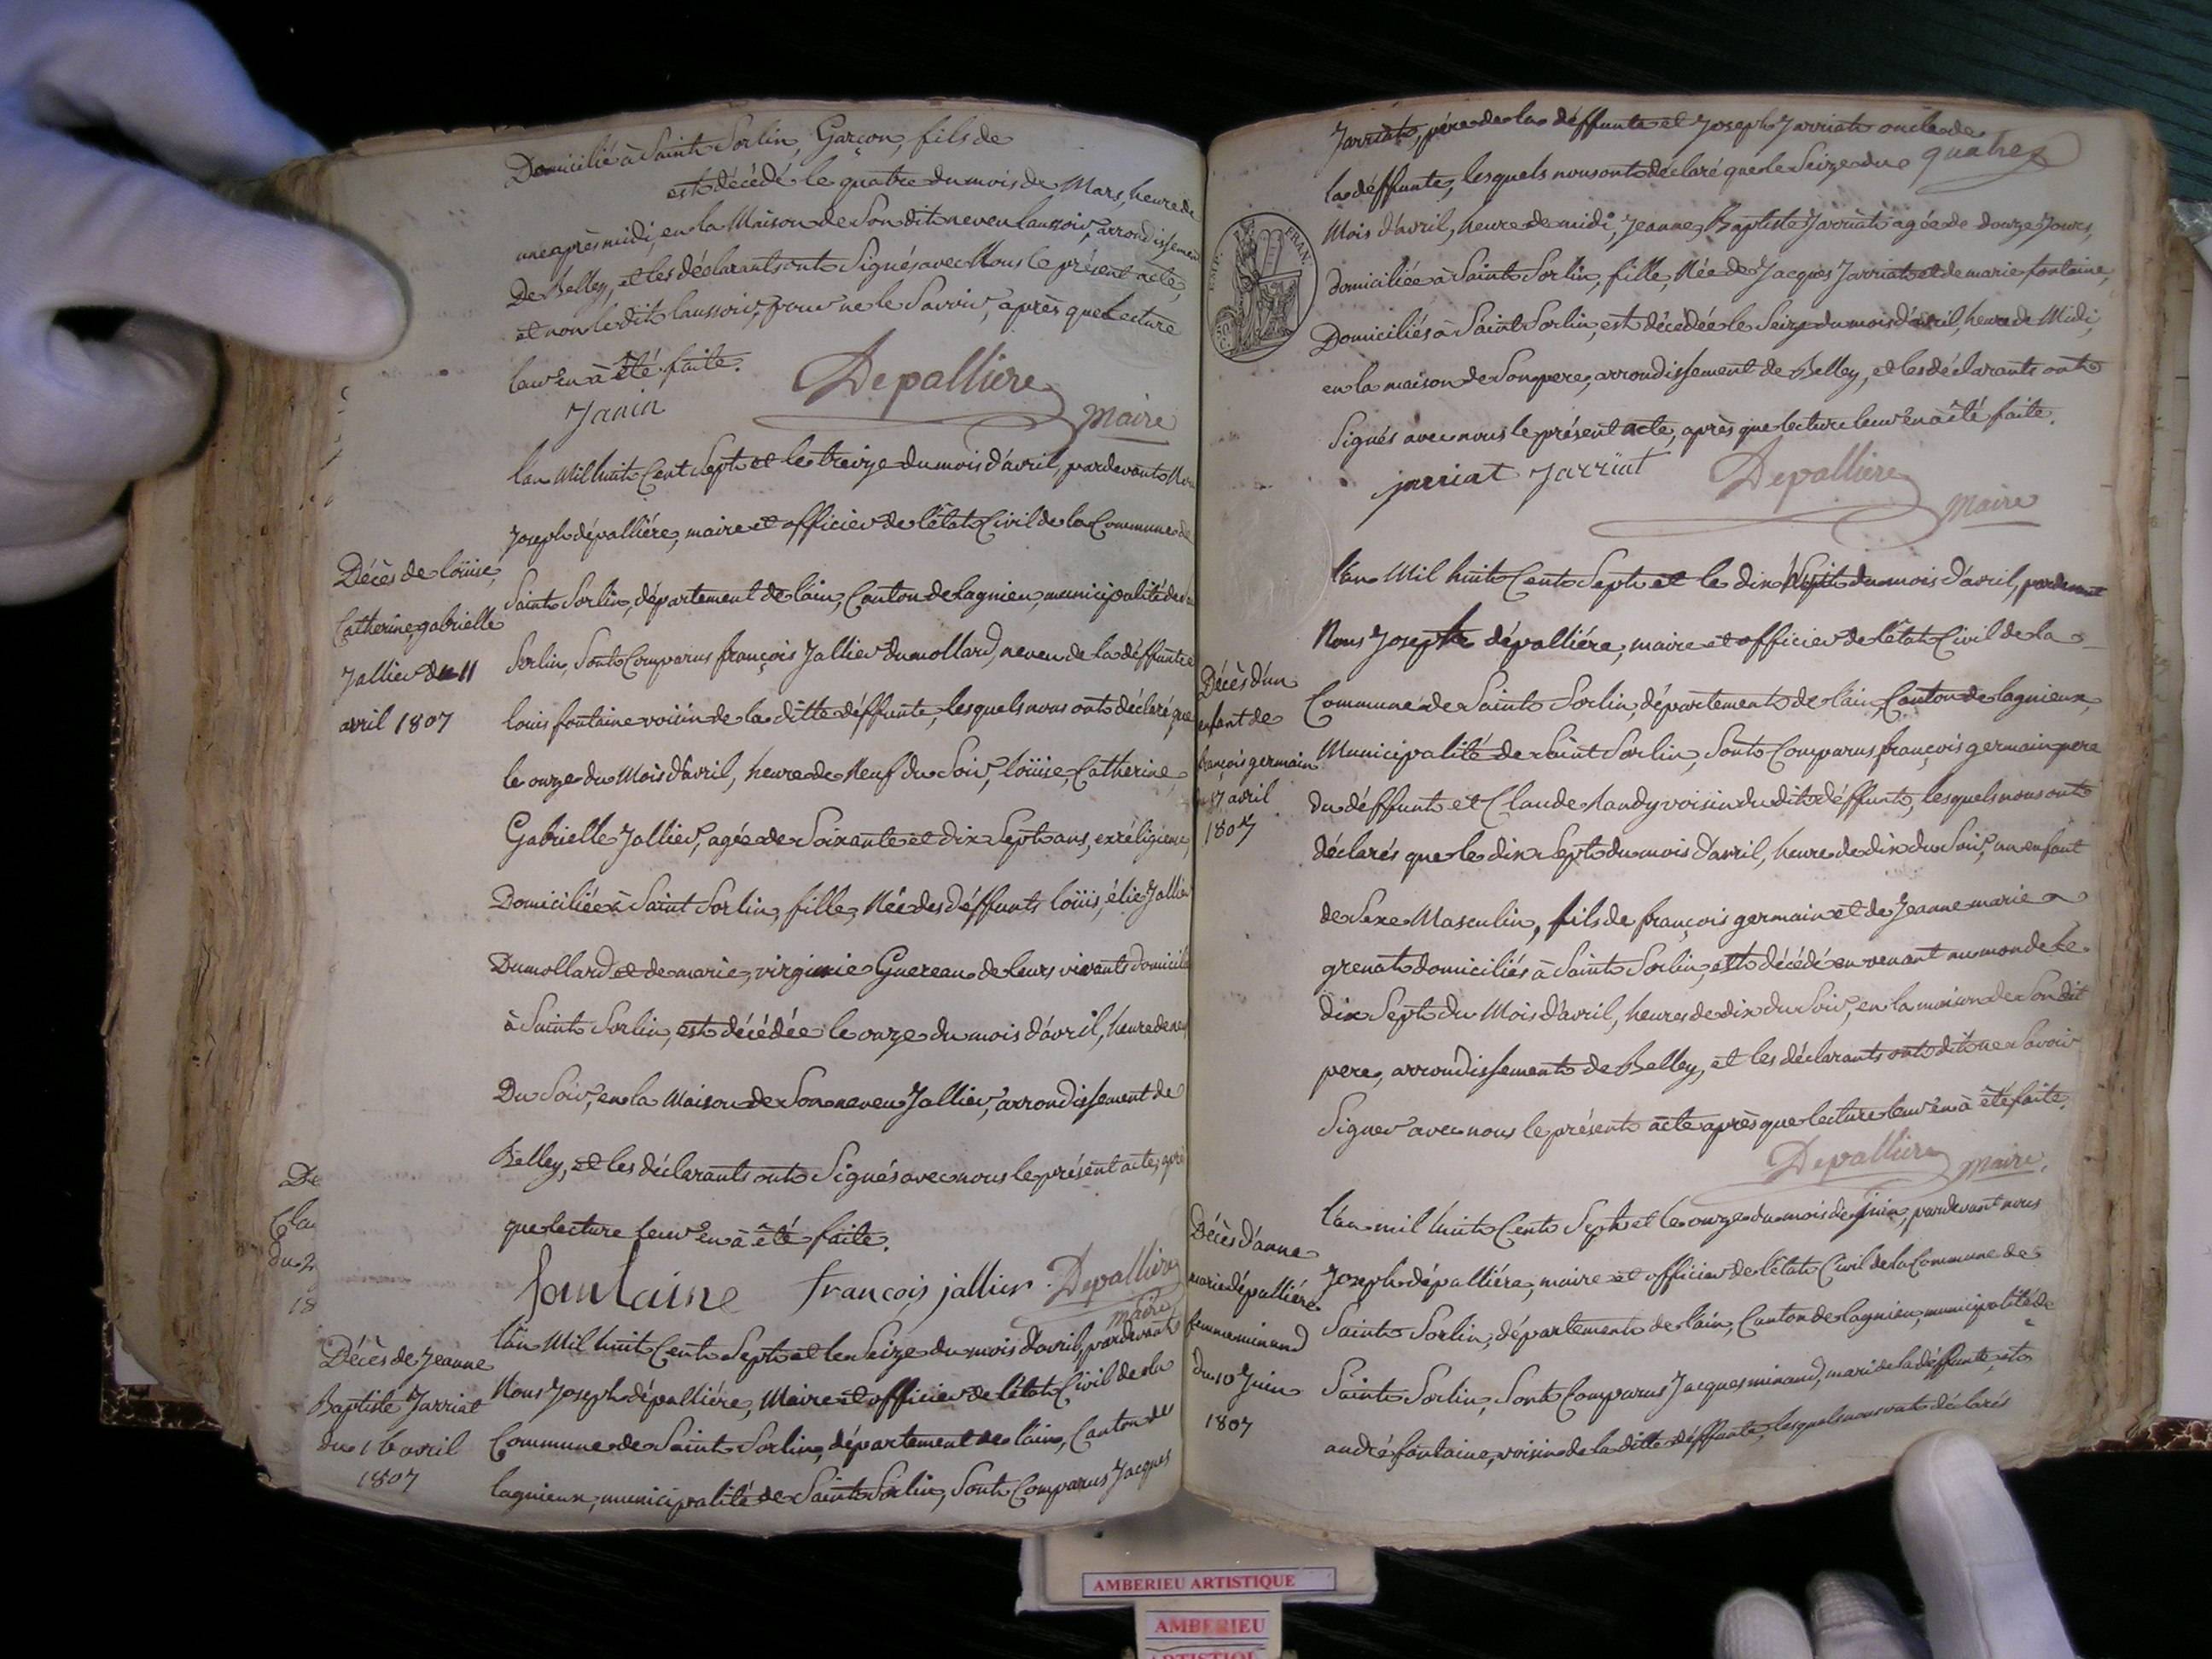 Domicilié à Saint Sorlin, Garçon, fils de
est décédé le quatre du mois de Mars, heure de
une après midi, en la Maison de Son dit neveu laussoir, arrondissement
De Belley, et les déclarants ont Signés avec Nous le présent acte,
et non le dit laussoir, pour ne le Savoir, après que Lecture
leur en à été faite.
Janin Depalliere Maire
lan Mil huit Cent Sept et le treize du mois d'avril, pardevant Nous
Joseph dépalliére, maire et officier de l'état Civil de la Commune de
Saint Sorlin, département de lain, Canton de lagnieu, municipalité de
Sorlin, Sont Comparus françois Jallier dumollard, neveu de la déffunte
louis fontaine voisin de la ditte déffunte, lesquels nous ont déclaré que
le onze du Mois d'avril, heure de Neuf du Soir, loüise, Catherine,
Gabrielle Jallier, agée de Soixante et dix Sept ans, exréligieuse,
Domiciliée à Saint Sorlin, fille, Née des déffunts loüis, élie Jallier
Dumollard et de marie, virginie Guereau de leurs vivants domicilié
à Saint Sorlin, est décédée le onze du mois d'avril, heure de neuf
Du Soir, en la Maison de Son neveu Jallier, arrondissement de
Belley, et les déclarants ont Signés avec nous le présent acte, après
que lecture leur en à été faite.
fontaine françois jallier Depalliere
maire
Décès de loüise,
Catherine, gabrielle
Jallier du 11
avril 1807
De
Cla
du 2
18
Décès de Jeanne
Baptiste Jarriat
du 16 avril
1807
l'an Mil huit Cent Sept et le Seize du mois d'avril, pardevant
Nous Joseph dépalliére, Maire et officier de l'état Civil de la
Commune de Saint Sorlin, département de lain, Canton de
lagnieux, municipalité de Saint Sorlin, Sont Comparus Jacques
Jarriat, pére de la déffunte et Joseph Jarriat oncle de
quatre
la déffunte, lesquels nous ont déclaré que le Seize du
Mois d'avril, heure de midi, Jeanne, Baptiste Jarriat agée de douze Jours,
domiciliée à Saint Sorlin, fille, Née de Jacques Jarriat et de marie fontaine,
Domiciliés à Saint Sorlin, est décedée le Seize du mois d'avril, heure de Midi,
en la maison de Son pere, arrondissement de Belley, et les déclarants ont
Signés avec nous le présent acte, après que lecture leur en à été faite.
jarriat Jarriat Depalliere Maire
EMP. FRAN.
l'an Mil huit Cent Sept et le dix Sept du mois d'avril, pardevant
Nous Joseph dépalliére, maire et officier de l'état Civil de la
Commune de Saint Sorlin, département de lain, Canton de lagnieux,
Municipalité de Saint Sorlin, Sont Comparus françois germain pere
du déffunt et Claude landy voisin du dit déffunt, lesquels nous ont
déclarés que le dix Sept du mois d'avril, heure de dix du Soir, un enfant
de Sexe Masculin, fils de françois germain et de Jeanne marie
grenat domiciliés à Saint Sorlin, est décédé en venant au monde le
dix Sept du Mois d'avril, heures de dix du Soir, en la maison de Son dit
pere, arrondissement de Belley, et les déclarants ont dit ne Savoir
Signer avec nous le présent acte après que lecture leur en à été faite.
Depalliere maire.
Décès d'un
enfant de
françois germain
du 17 avril
1807
Décès d'anne
marie dépalliére
femme minand
du 10 Juin
1807
l'an mil huit Cent Sept et le onze du mois de Juin, pardevant nous
Joseph dépalliére, maire et officier de l'état Civil de la Commune de
Saint Sorlin, département de lain, Canton de lagnieu, municipalité de
Saint Sorlin, Sont Comparus Jacques minand, mari de la déffunte, et
andré fontaine, voisin de la ditte déffunte, lesquels nous ont déclarés
AMBERIEU ARTISTIQUE
AMBERIEU
ARTISTIQUE